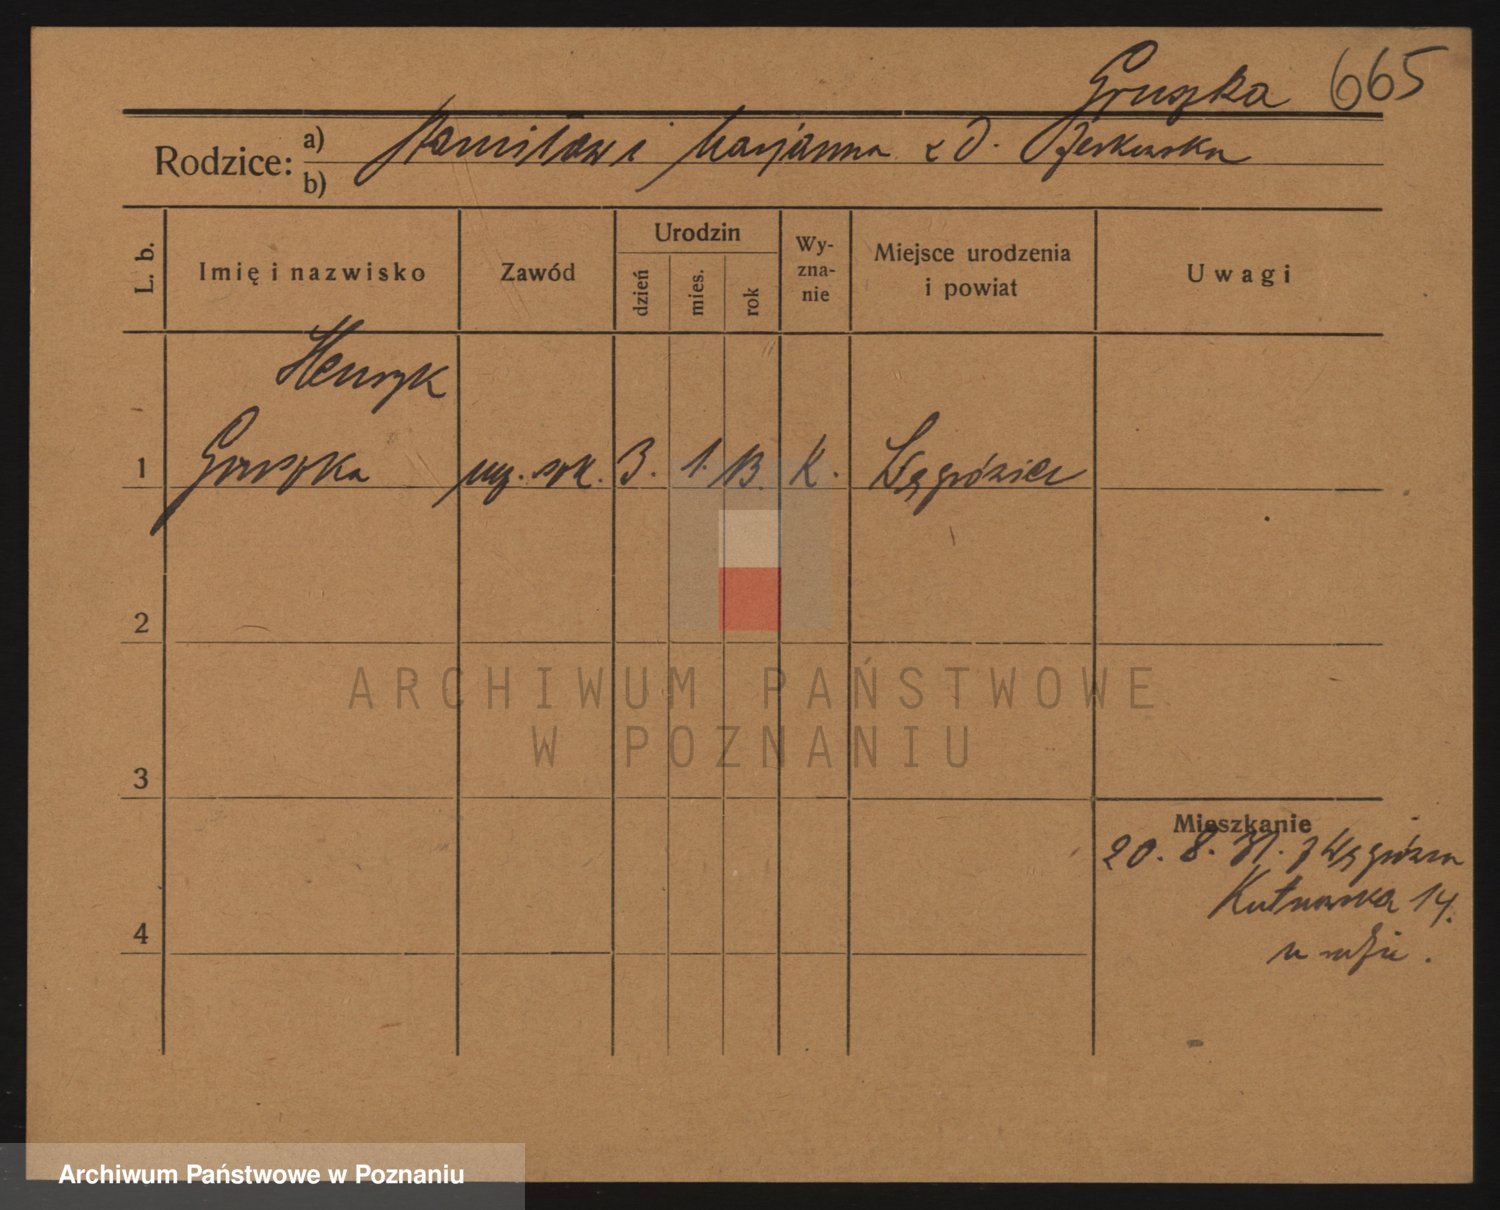 Gruszka 665
Rodzice:
a) Stanisław i Marjanna z d.
b)
L. b.
Imię i nazwisko
Zawód
Urodzin
dzień
mies.
rok
Wy-
zna-
nie
Miejsce urodzenia
i powiat
Uwagi
Henryk
1 Gruszka ucz. szk. 3. 1. 13. K.
2
ARCHIWUM PAŃSTWOWE
W POZNANIU
3
Mieszkanie
20. 8. 31. z
Kutnowska 14.
4
Archiwum Państwowe w Poznaniu